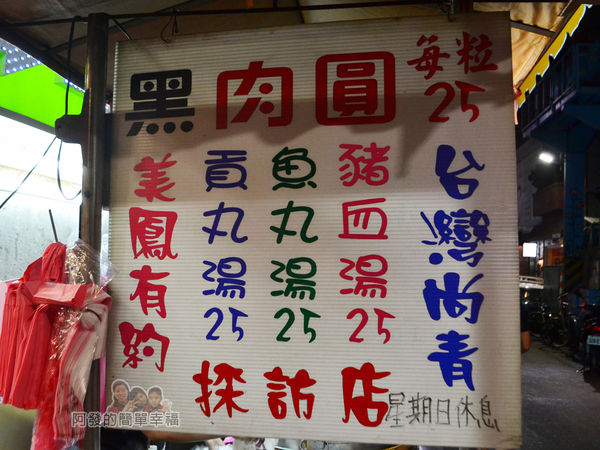 黑肉圓
每粒
25
美鳳有約
貢丸湯25
魚丸湯25
豬血湯25
台灣尚青
採訪店
星期日休息
阿發的簡單幸福